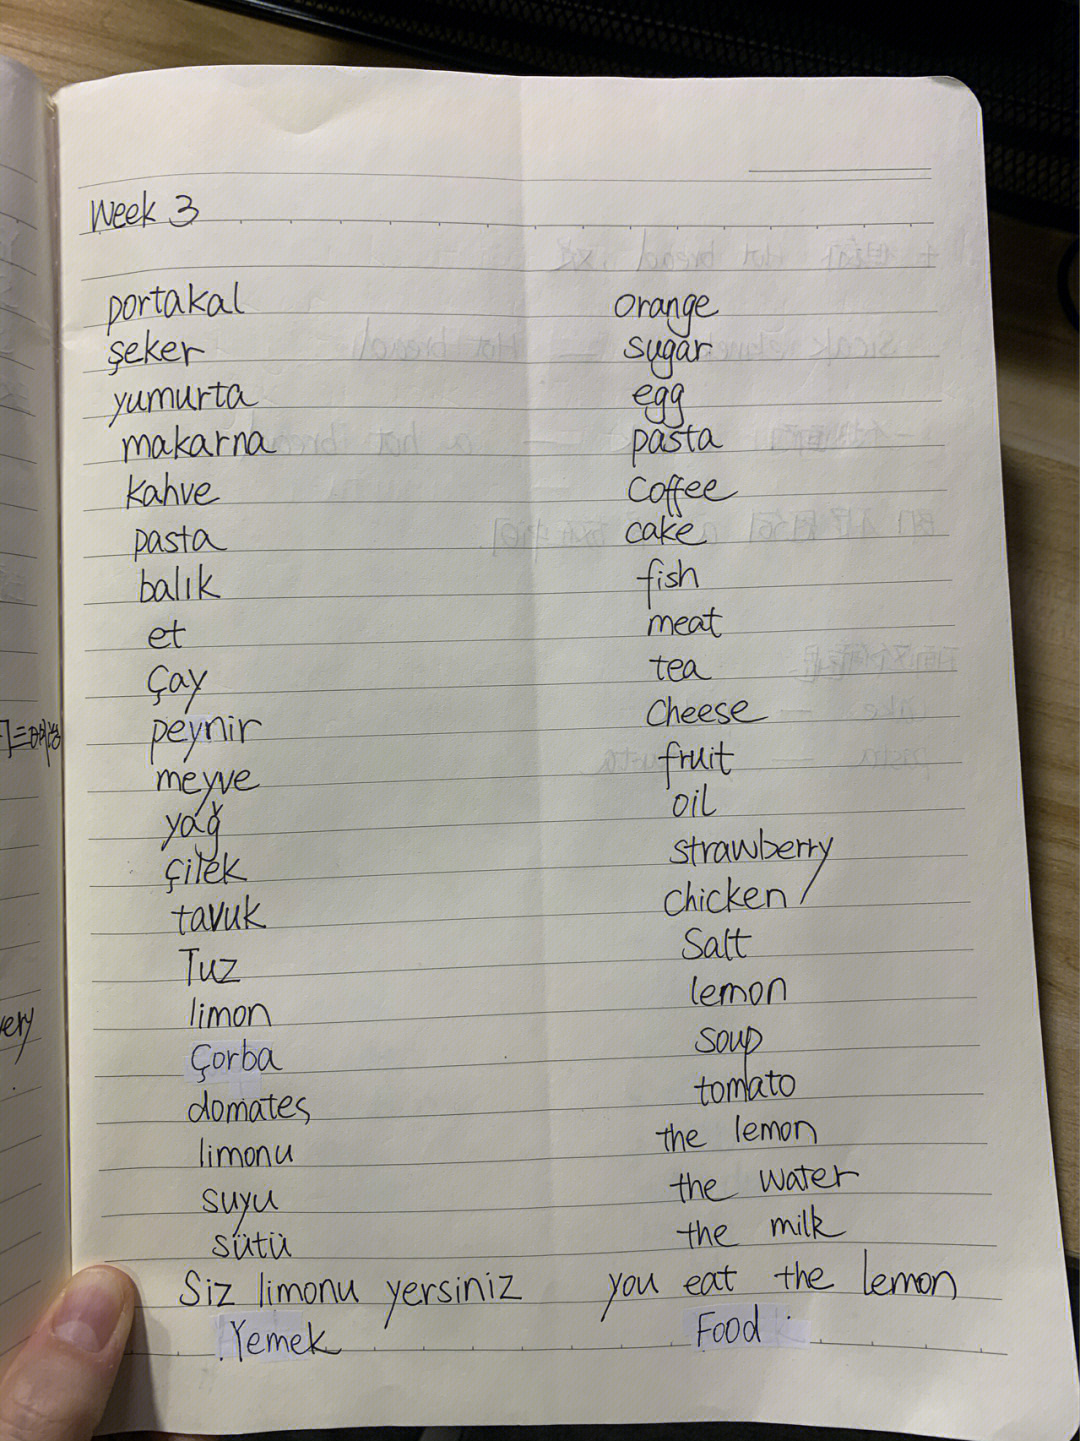 Week 3
portakal orange
şeker sugar
yumurta egg
makarna pasta
kahve coffee
pasta cake
balık fish
et meat
çay tea
peynir cheese
meyve fruit
yağ oil
çilek strawberry
tavuk chicken
Tuz Salt
limon lemon
Çorba soup
domates tomato
limonu the lemon
suyu the water
sütü the milk
Siz limonu yersiniz you eat the lemon
Yemek Food
ery